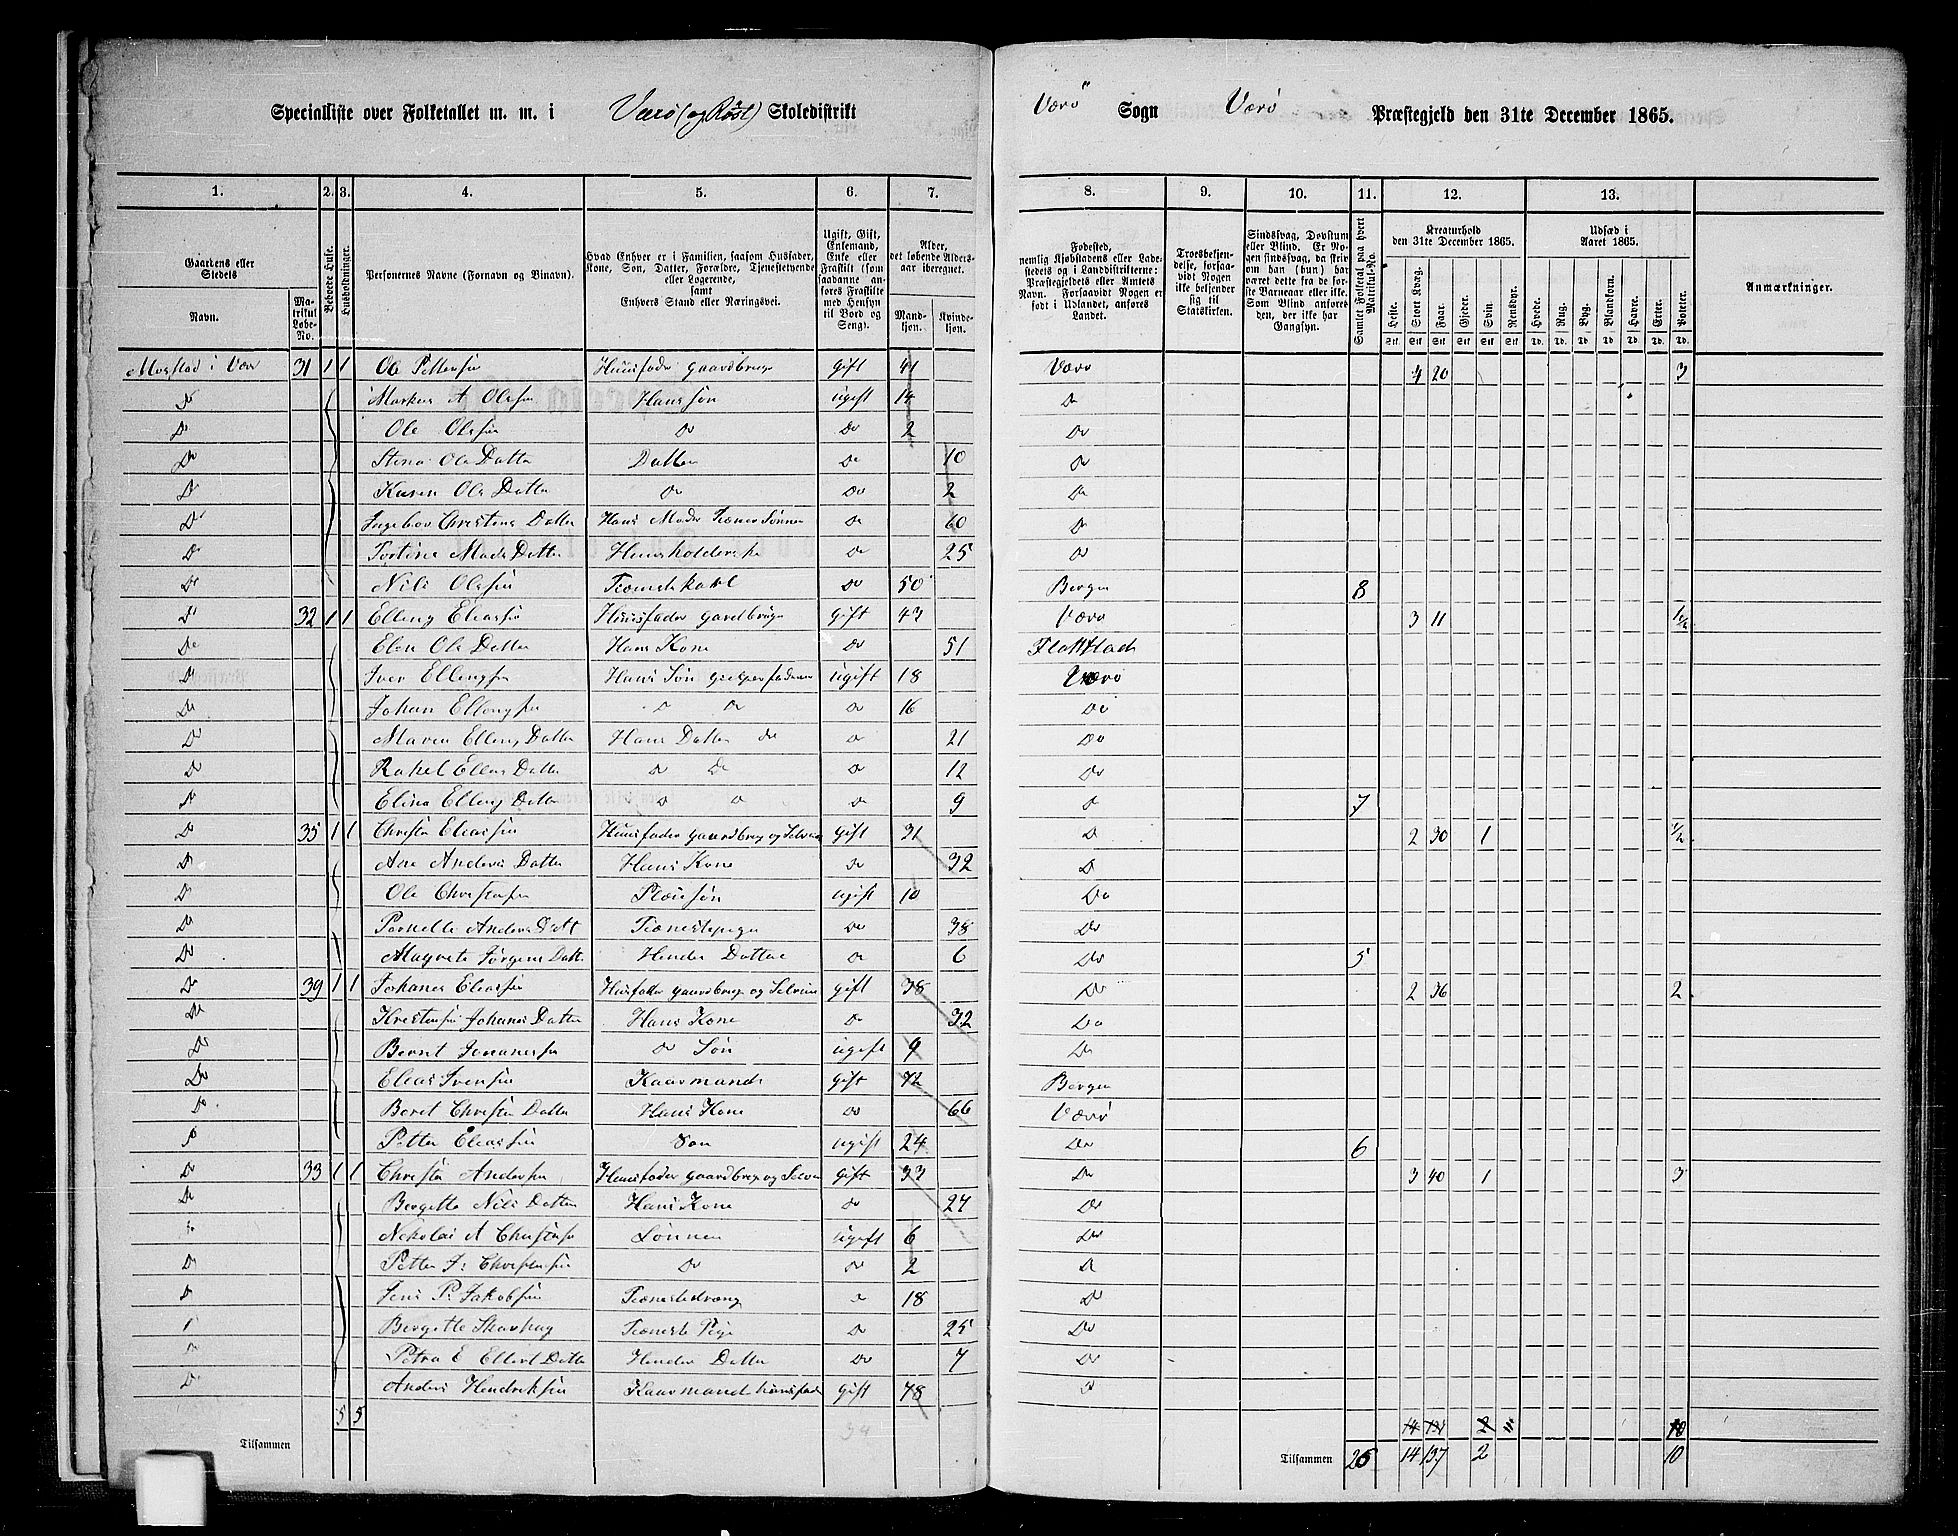 Specialliste over Folketallet m. m. i Værø (og Røst) Skoledistrikt
Værø Sogn Værø Præstegjeld den 31te December 1865.
1. 2. 3. 4. 5. 6. 7. 8. 9. 10. 11. 12. 13.
Gaardens eller Stedets
Navn.
Matrikul Løbe-No.
Beboede Huse.
Husholdninger.
Personernes Navne (Fornavn og Binavn).
Hvad Enhver er i Familien, saasom Husfader, Kone, Søn, Datter, Forældre, Tjenestetyende eller Logerende, samt Enhvers Stand eller Næringsvei.
Ugift, Gift, Enkemand, Enke eller Fraskilt (saadanne anføres Fraskilte med Hensyn til Bord og Seng).
Alder, det løbende Aldersaar iberegnet.
Mandkjøn. Kvindekjøn.
Fødested, nemlig Kjøbstadens eller Ladestedets og i Landdistrikterne: Præstegjeldets eller Amtets Navn. Forsaavidt Nogen er født i Udlandet, anføres Landet.
Troesbekjendelse, forsaavidt Nogen ikke bekjender sig til Statskirken.
Sindssvag, Døvstum eller Blind. Er Nogen sindssvag, da skrives om han (hun) har været dette fra de første Barneaar eller ikke. Som Blind opføres den, der ikke har Gangsyn.
Samlet Folketal paa hvert Matrikul-No.
Kreaturhold den 31te December 1865.
Heste. Stort Kvæg. Faar. Gjeder. Svin. Rensdyr.
Udsæd i Aaret 1865.
Hvede. Rug. Byg. Blandkorn. Havre. Erter. Poteter.
Anmærkninger.
Mostad i Værø 31 1 1 Ole Pettersen Huusfader gaardbruger gift 41 Værø 4 20 3
Do Markus A Olsen Hans søn ugift 14 Do
Do Ole Olsen Do Do 2 Do
Do Stina Ols Datter Datter Do 10 Do
Do Karen Ols Datter Do Do 2 Do
Do Ingebor Christens Datter Hans Moder Do 60 Do
Do Mads Datter Huusholderske Do 25 Do
Do Nils Olsen Tienestekarl Do 50 Bergen 8
Do 32 1 1 Elling Eliassen Huusfader gaardbruger gift 43 Værø 3 11 1 1/2
Do Elen Ols Datter Hans Kone Do 51 Flakstad
Do Iver Ellingsen Hans Søn ugift 18 Værø
Do Johan Ellingsen Do Do Do 16 Do
Do Maren Ellings Datter Hans Datter do Do 21 Do
Do Rakel Datter Do Do Do 12 Do
Do Elina Ellings Datter Do Do Do 9 Do 7
Do 35 1 1 Christen Eliassen Huusfader gaardbruger og Selveier gift 31 Do 2 30 1 1/2
Do Ane Anders Datter Hans Kone Do 32 Do
Do Ole Christensen Pleiesøn ugift 10 Do
Do Pernelle Anders Datt Tienestepige Do 38 Do
Do Magrete Jørgens Datt Hendes Datter Do 6 Do 5
Do 39 1 1 Johanes Eliassen Husfader gaardbruger og Selveier gift 38 Do 2 36 2
Do Johanes Datter Hans Kone Do 32 Do
Do Bernt Johanessen Do Søn ugift 9 Do
Do Elias Iversen Kaarmand gift 72 Bergen
Do Beret Christens Datter Hans Kone Do 66 Værø
Do Petter Eliassen Søn ugift 24 Do 6
Do 33 1 1 Christen Andersen Huusfader gaardbruger og Selveier gift 33 Do 3 40 1 3
Do Bergette Nils Datter Hans Kone Do 27 Do
Do Nikolai A Christensen Sønner ugift 6 Do
Do Petter J. Christensen Do Do 2 Do
Do Jens P. Jakobsen Tienestedreng Do 18 Do
Do Bergette Tieneste Pige Do 25 Do
Do Petra E Datter Hendes Datter Do 7 Do
Do Anders Hendriksen Kaarmand gift 78 Do
5 5 34 14 137 2 10
Tilsammen
Tilsammen 26 14 137 2 10